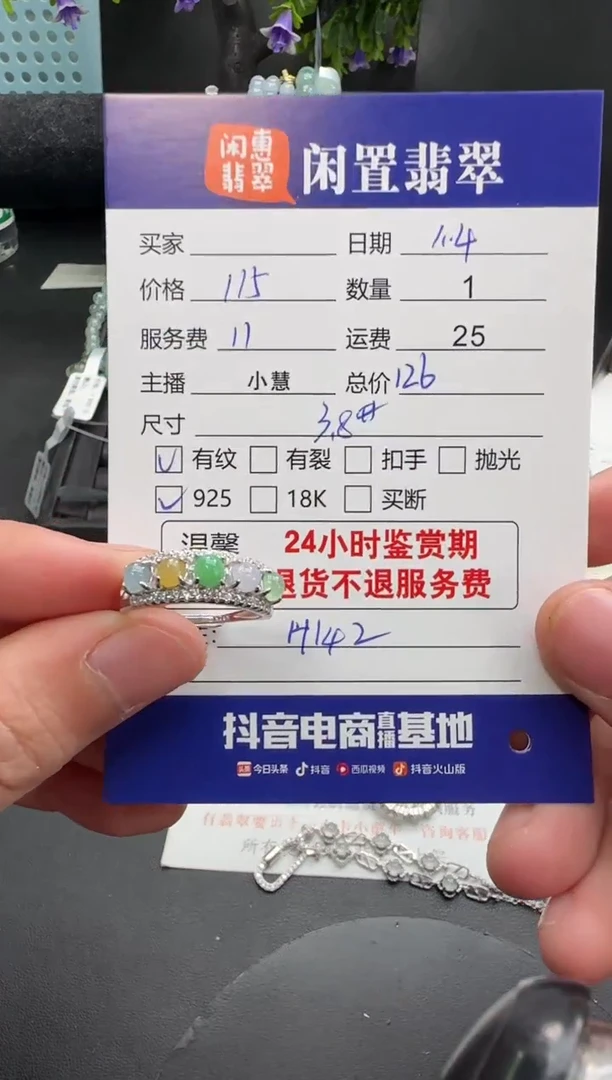 闲惠翡翠 闲置翡翠
买家 日期 1.4
价格 115 数量 1
服务费 11 运费 25
主播 小慧 总价 126
尺寸 3.8#
☑ 有纹 ☐ 有裂 ☐ 扣手 ☐ 抛光
☑ 925 ☐ 18K ☐ 买断
温馨 24小时鉴赏期
退货不退服务费
H142
抖音电商直播基地
头条 今日头条 抖音 西瓜视频 抖音火山版
咨询客服
所有